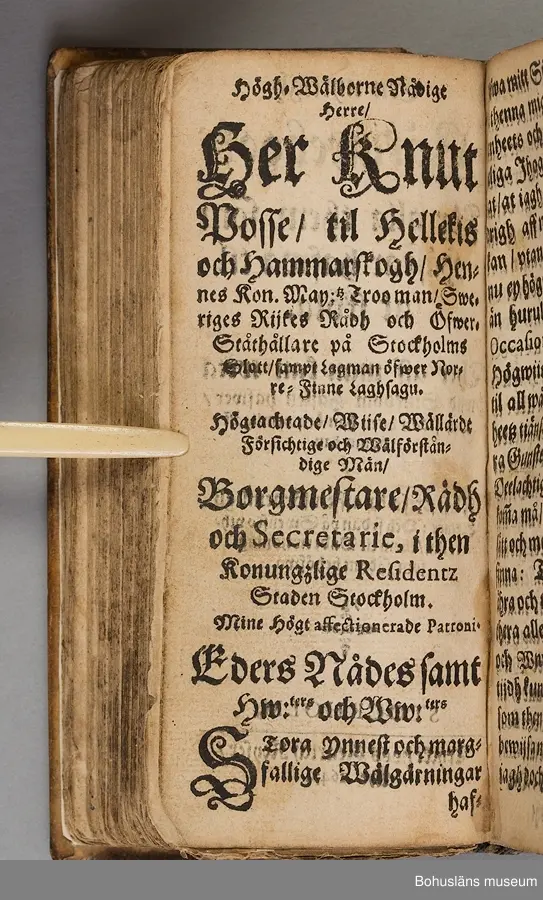 Högh-Wälborne Nådige
Herre/
Her Knut
Posse/ til Hellekis
och Hammarskogh/ Hen-
nes Kon. May:tz Trooman/ Swe-
riges Rijkes Rådh och Öfwer-
Ståthållare på Stockholms
Slott/ sampt Lagman öfwer Nor-
re-Finne Laghsagu.
Högtachtade/ Wijse/ Wällärde
Försichtige och Wälförstån-
dige Män/
Borgmestare/ Rådh
och Secretarie, i then
Konungzlige Residentz
Staden Stockholm.
Mine Högt affectionerade Patroni.
Eders Nådes samt
Hw:ters och Ww:ters
STora ynnest och mang-
fallige Wälgärningar
haf-
mitt
thenna
och
liga
at/ at iagh
nu ey
än
Occasion
til all
och
som then
iagh doch
Bohusläns museum